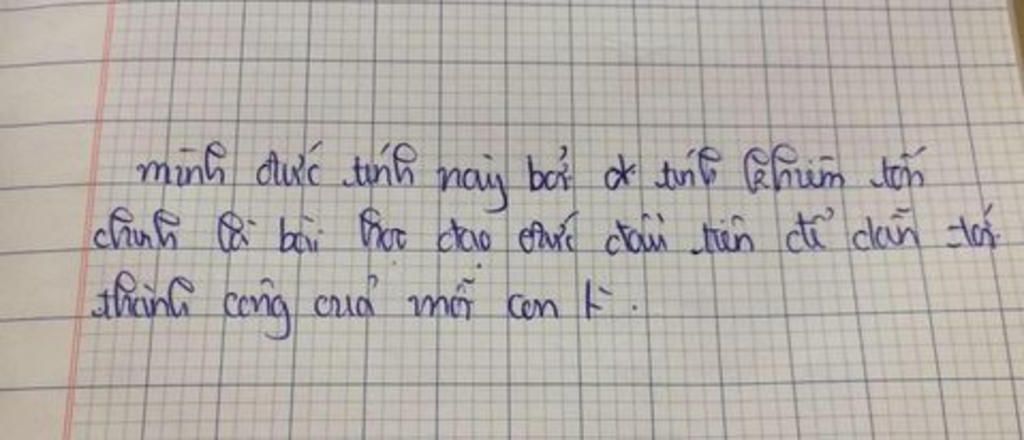 mình đức tính này bởi α tính khiêm tốn
chính là bài học đạo đức đầu tiên để dẫn tới
thành công cuả mỗi con